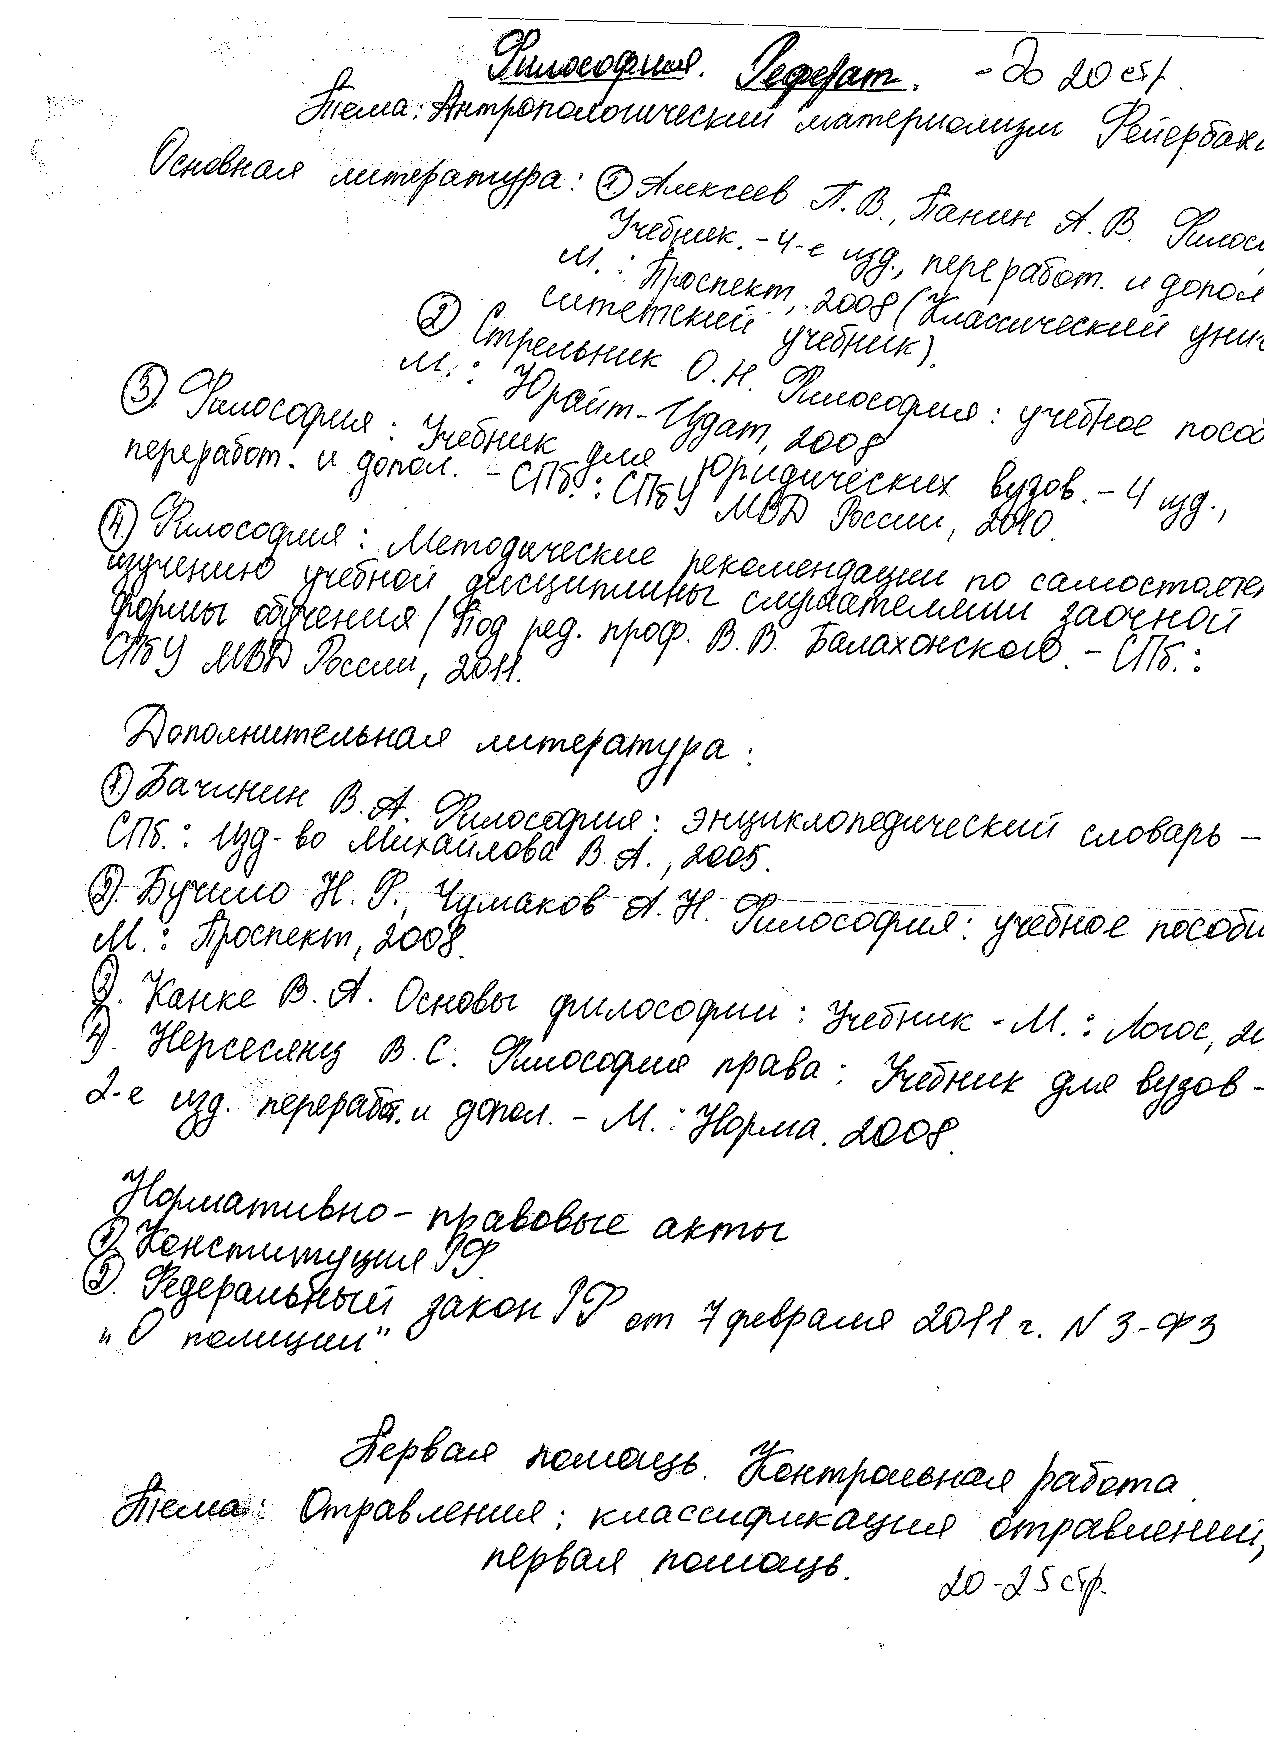 Философия. Реферат. - до 20 стр.
Тема: Антропологический материализм Фейербаха
Основная литература: ① Алексеев П.В., Панин А.В. Филосо
Учебник. - 4-е изд., переработ. и допол
М.: Проспект, 2008 (Классический уни
ситетский учебник).
② Стрельник О.Н. Философия: учебное посо
М.: Юрайт-Издат, 2008
③ Философия: Учебник для юридических вузов. - 4 изд.,
переработ. и допол. - СПб.: СПбУ МВД России, 2010.
④ Философия: Методические рекомендации по самостояте
изучению учебной дисциплины слушателями заочной
формы обучения / Под ред. проф. В.В. Балахонского. - СПб.:
СПбУ МВД России, 2011.
Дополнительная литература:
① Бачинин В.А. Философия: энциклопедический словарь -
СПб.: Изд-во Михайлова В.А., 2005.
②. Бучило Н.Ф., Чумаков А.Н. Философия: учебное пособи
М.: Проспект, 2008.
③. Канке В.А. Основы философии: Учебник - М.: Логос, 20
④. Нерсесянц В.С. Философия права: Учебник для вузов -
2-е изд. переработ. и допол. - М.: Норма. 2008.
Нормативно-правовые акты
①. Конституция РФ.
②. Федеральный закон РФ от 7 февраля 2011 г. N 3-ФЗ
"О полиции"
Первая помощь. Контрольная работа.
Тема: Отравления: классификация отравлений,
первая помощь.
20-25 стр.